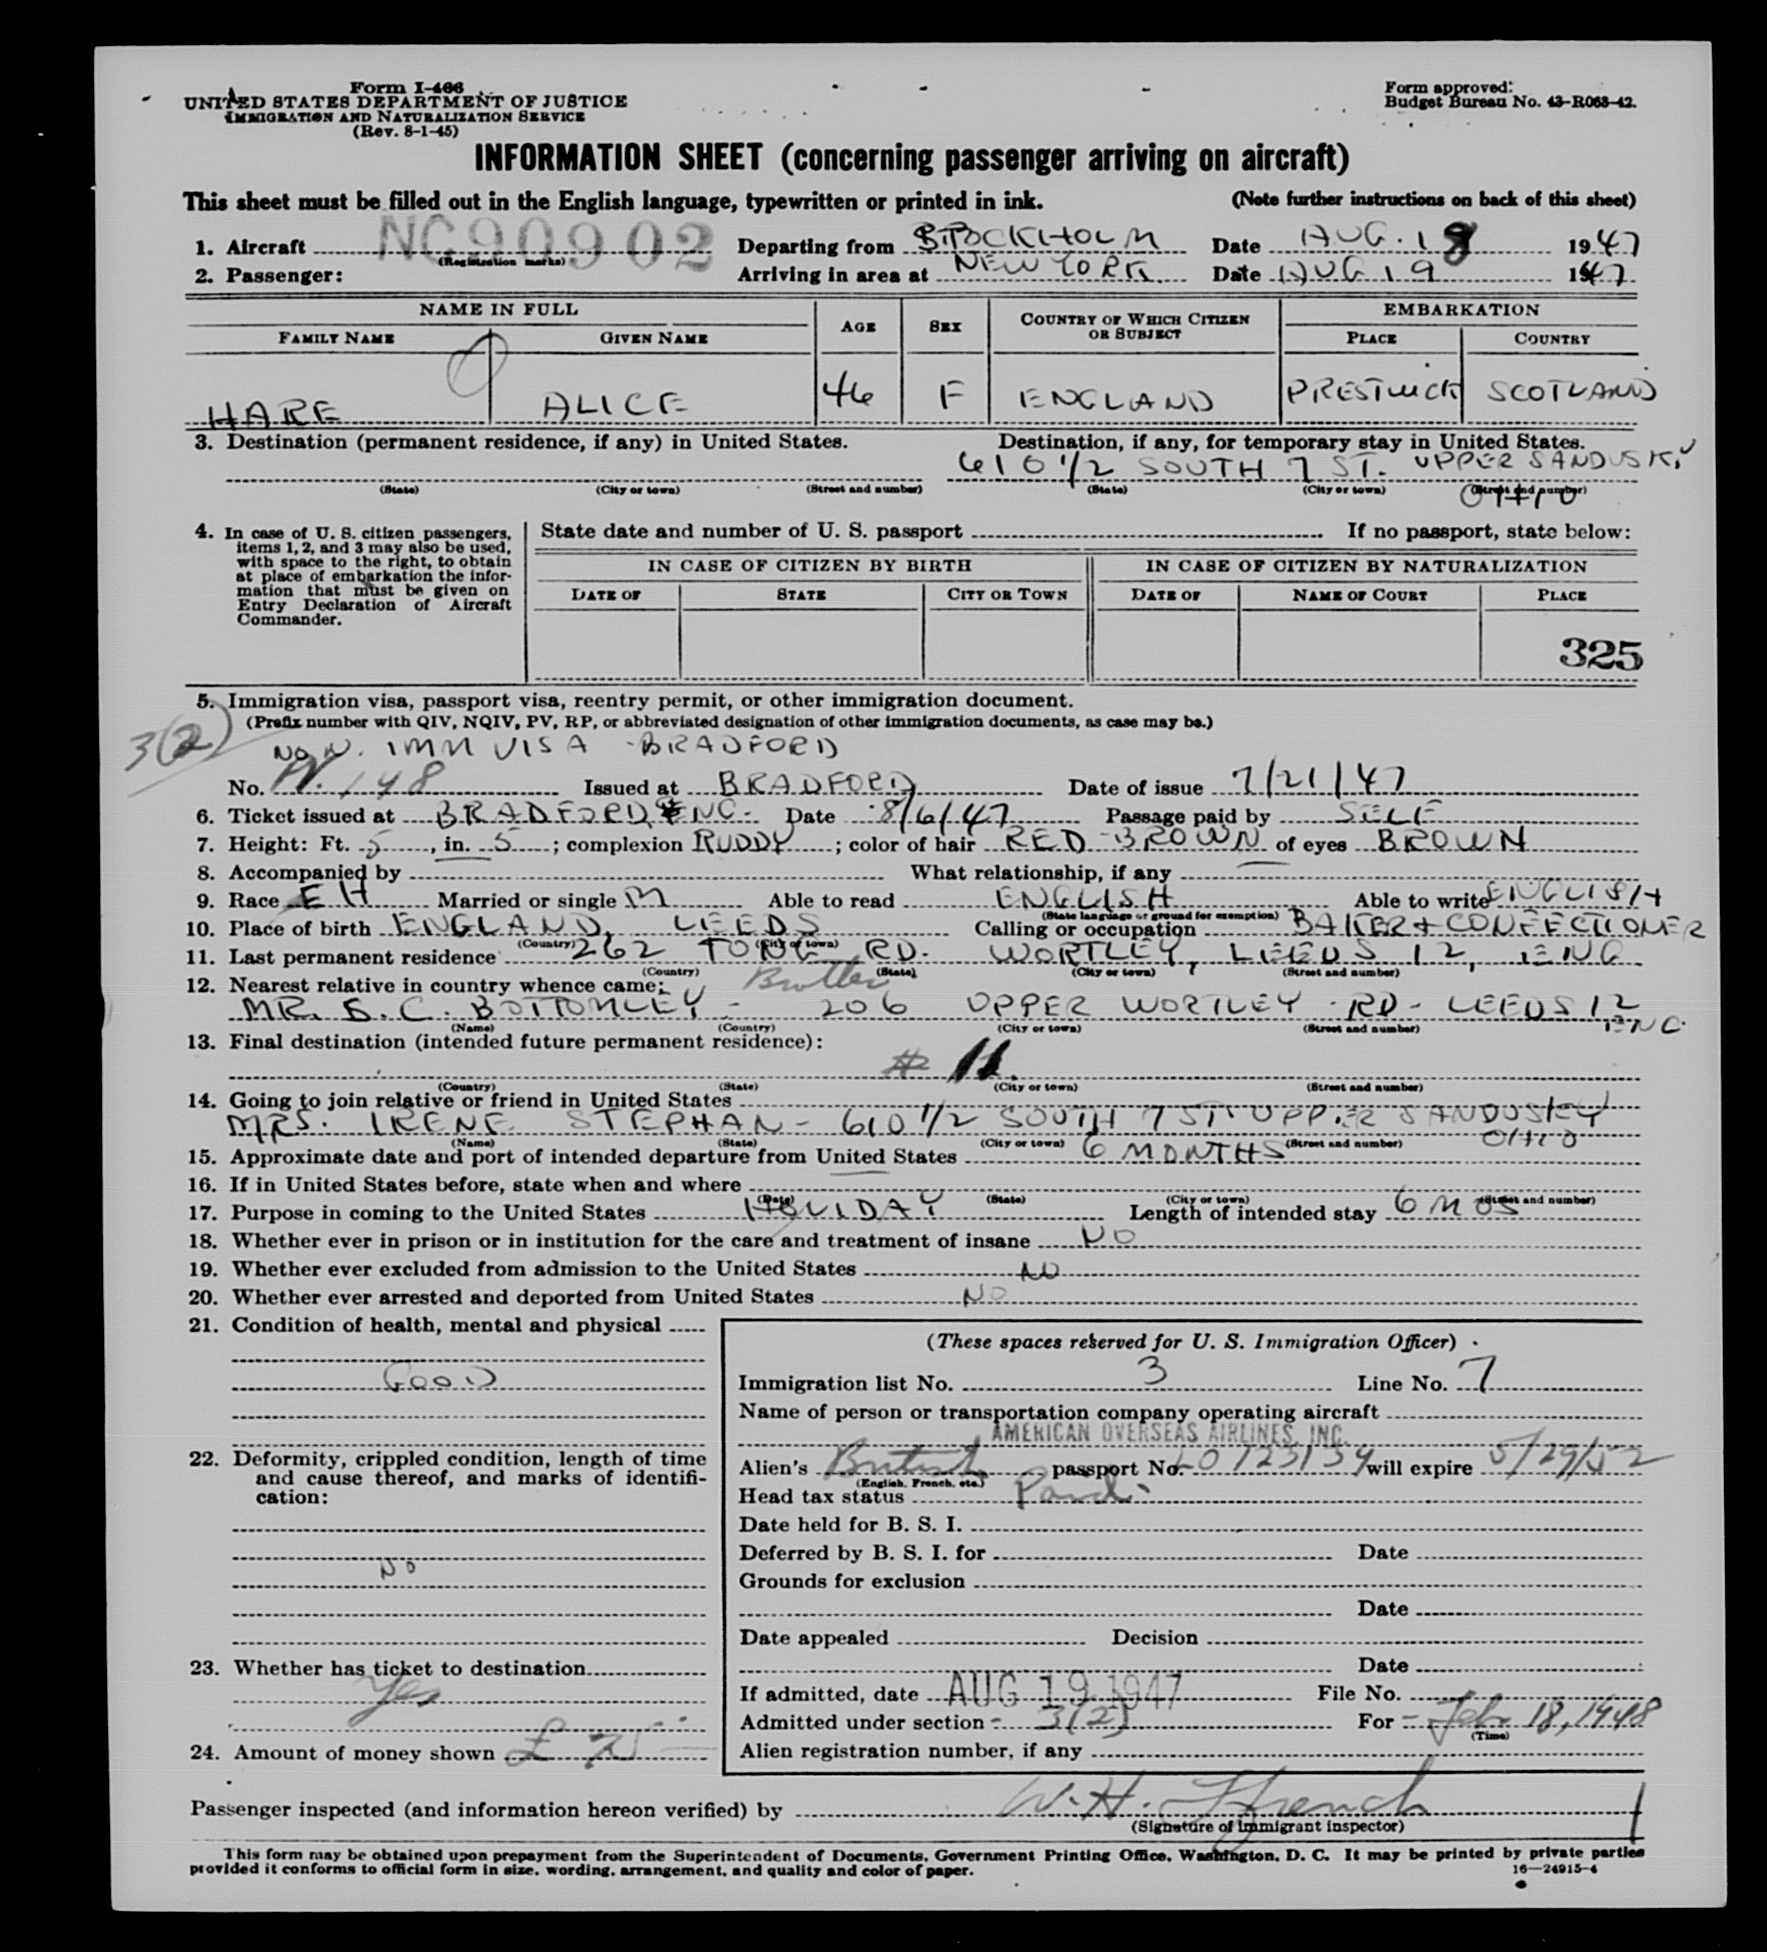 Form I-466
UNITED STATES DEPARTMENT OF JUSTICE
IMMIGRATION AND NATURALIZATION SERVICE
(Rev. 8-1-45)
Form approved:
Budget Bureau No. 43-R063-42.
INFORMATION SHEET (concerning passenger arriving on aircraft)
This sheet must be filled out in the English language, typewritten or printed in ink. (Note further instructions on back of this sheet)
1. Aircraft NC90902 Departing from STOCKHOLM Date AUG. 18 1947
(Registration marks)
2. Passenger: Arriving in area at NEW YORK Date AUG 19 1947
NAME IN FULL AGE SEX COUNTRY OF WHICH CITIZEN OR SUBJECT EMBARKATION
FAMILY NAME GIVEN NAME PLACE COUNTRY
HARE ALICE 46 F ENGLAND PRESTWICK SCOTLAND
3. Destination (permanent residence, if any) in United States. Destination, if any, for temporary stay in United States.
610 1/2 SOUTH 7 ST. UPPER SANDUSKY
(State) (City or town) (Street and number) (State) (City or town) (Street and number)
OHIO
4. In case of U. S. citizen passengers, items 1, 2, and 3 may also be used, with space to the right, to obtain at place of embarkation the information that must be given on Entry Declaration of Aircraft Commander.
State date and number of U. S. passport If no passport, state below:
IN CASE OF CITIZEN BY BIRTH IN CASE OF CITIZEN BY NATURALIZATION
DATE OF STATE CITY OR TOWN DATE OF NAME OF COURT PLACE
325
5. Immigration visa, passport visa, reentry permit, or other immigration document.
(Prefix number with QIV, NQIV, PV, RP, or abbreviated designation of other immigration documents, as case may be.)
3(2)
NON. IMM VISA - BRADFORD
No. PV. 148 Issued at BRADFORD Date of issue 7/21/47
6. Ticket issued at BRADFORD ENG. Date 8/6/47 Passage paid by SELF
7. Height: Ft. 5, in. 5; complexion RUDDY; color of hair RED-BROWN of eyes BROWN
8. Accompanied by What relationship, if any
9. Race EH Married or single M Able to read ENGLISH Able to write ENGLISH
(State language or ground for exemption)
10. Place of birth ENGLAND, LEEDS Calling or occupation BAKER + CONFECTIONER
(Country) (City or town)
11. Last permanent residence 262 TONG RD. WORTLEY, LEEDS 12, ENG
(Country) (State) (City or town) (Street and number)
12. Nearest relative in country whence came: Brother
MR. S. C. BOTTOMLEY - 206 UPPER WORTLEY RD - LEEDS 12 ENG.
(Name) (Country) (City or town) (Street and number)
13. Final destination (intended future permanent residence):
# 11.
(Country) (State) (City or town) (Street and number)
14. Going to join relative or friend in United States
MRS. IRENE STEPHAN - 610 1/2 SOUTH 7 ST UPPER SANDUSKY
(Name) (State) (City or town) (Street and number) OHIO
15. Approximate date and port of intended departure from United States 6 MONTHS
16. If in United States before, state when and where
(Date) (State) (City or town) (Street and number)
17. Purpose in coming to the United States HOLIDAY Length of intended stay 6 MOS
18. Whether ever in prison or in institution for the care and treatment of insane NO
19. Whether ever excluded from admission to the United States NO
20. Whether ever arrested and deported from United States NO
21. Condition of health, mental and physical
GOOD
22. Deformity, crippled condition, length of time and cause thereof, and marks of identification:
NO
23. Whether has ticket to destination
Yes
24. Amount of money shown £ 75
(These spaces reserved for U. S. Immigration Officer)
Immigration list No. 3 Line No. 7
Name of person or transportation company operating aircraft
AMERICAN OVERSEAS AIRLINES, INC.
Alien's British passport No. LO 123134 will expire 5/29/52
(English, French, etc.)
Head tax status Paid.
Date held for B. S. I.
Deferred by B. S. I. for Date
Grounds for exclusion
Date
Date appealed Decision
Date
If admitted, date AUG 19 1947 File No.
Admitted under section - 3(2) For - Feb. 18, 1948
(Time)
Alien registration number, if any
Passenger inspected (and information hereon verified) by W. H. Ffrench
(Signature of immigrant inspector)
This form may be obtained upon prepayment from the Superintendent of Documents, Government Printing Office, Washington, D. C. It may be printed by private parties
provided it conforms to official form in size, wording, arrangement, and quality and color of paper.
16—24915-4